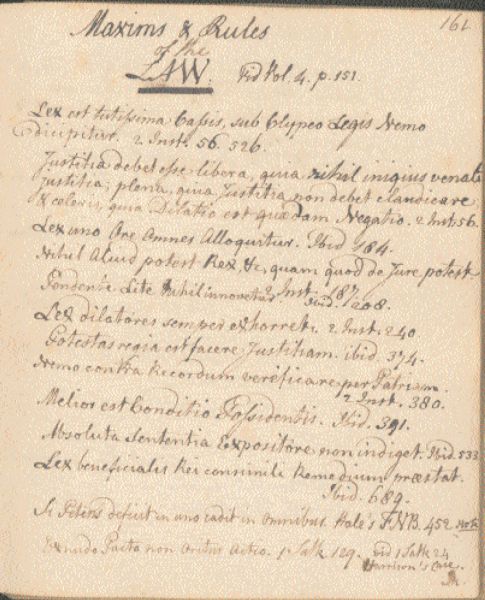 161
Maxims & Rules
of the
LAW. Vid Vol. 4. p. 151.
Lex est tutissima Cassis, sub Clypeo Legis Nemo
decipitur. 2 Inst. 56. 526.
Justitia debet esse libera, quia nihil iniquius venali
Justitia; plena, quia Justitia non debet claudicare
& celeris, quia Dilatio est quædam Negatio. 2 Inst. 56.
Lex uno Ore Omnes Alloquitur. Ibid 184.
Nihil Aliud potest Rex, &c, quam quod de Jure potest.
2 Inst. 187
Pendente Lite Nihil innovetur Ibid. 208.
Lex dilatores semper exhorret. 2 Inst. 240
Potestas regia est facere Justitiam. ibid. 374.
Nemo contra Recordum verificare per Patriam.
2 Inst. 380.
Melior est Conditio Possidentis. Ibid. 391.
Absoluta Sententia Expositore non indiget. Ibid. 533
Lex beneficialis Rei consimili Remedium præstat.
Ibid. 689.
Si Petens deficit in uno cadit in Omnibus. Hale's F.N.B. 452
Ex nudo Pacto non Oritur Actio. 1 Salk 129. Vid 1 Salk 24
Harrison's Case.